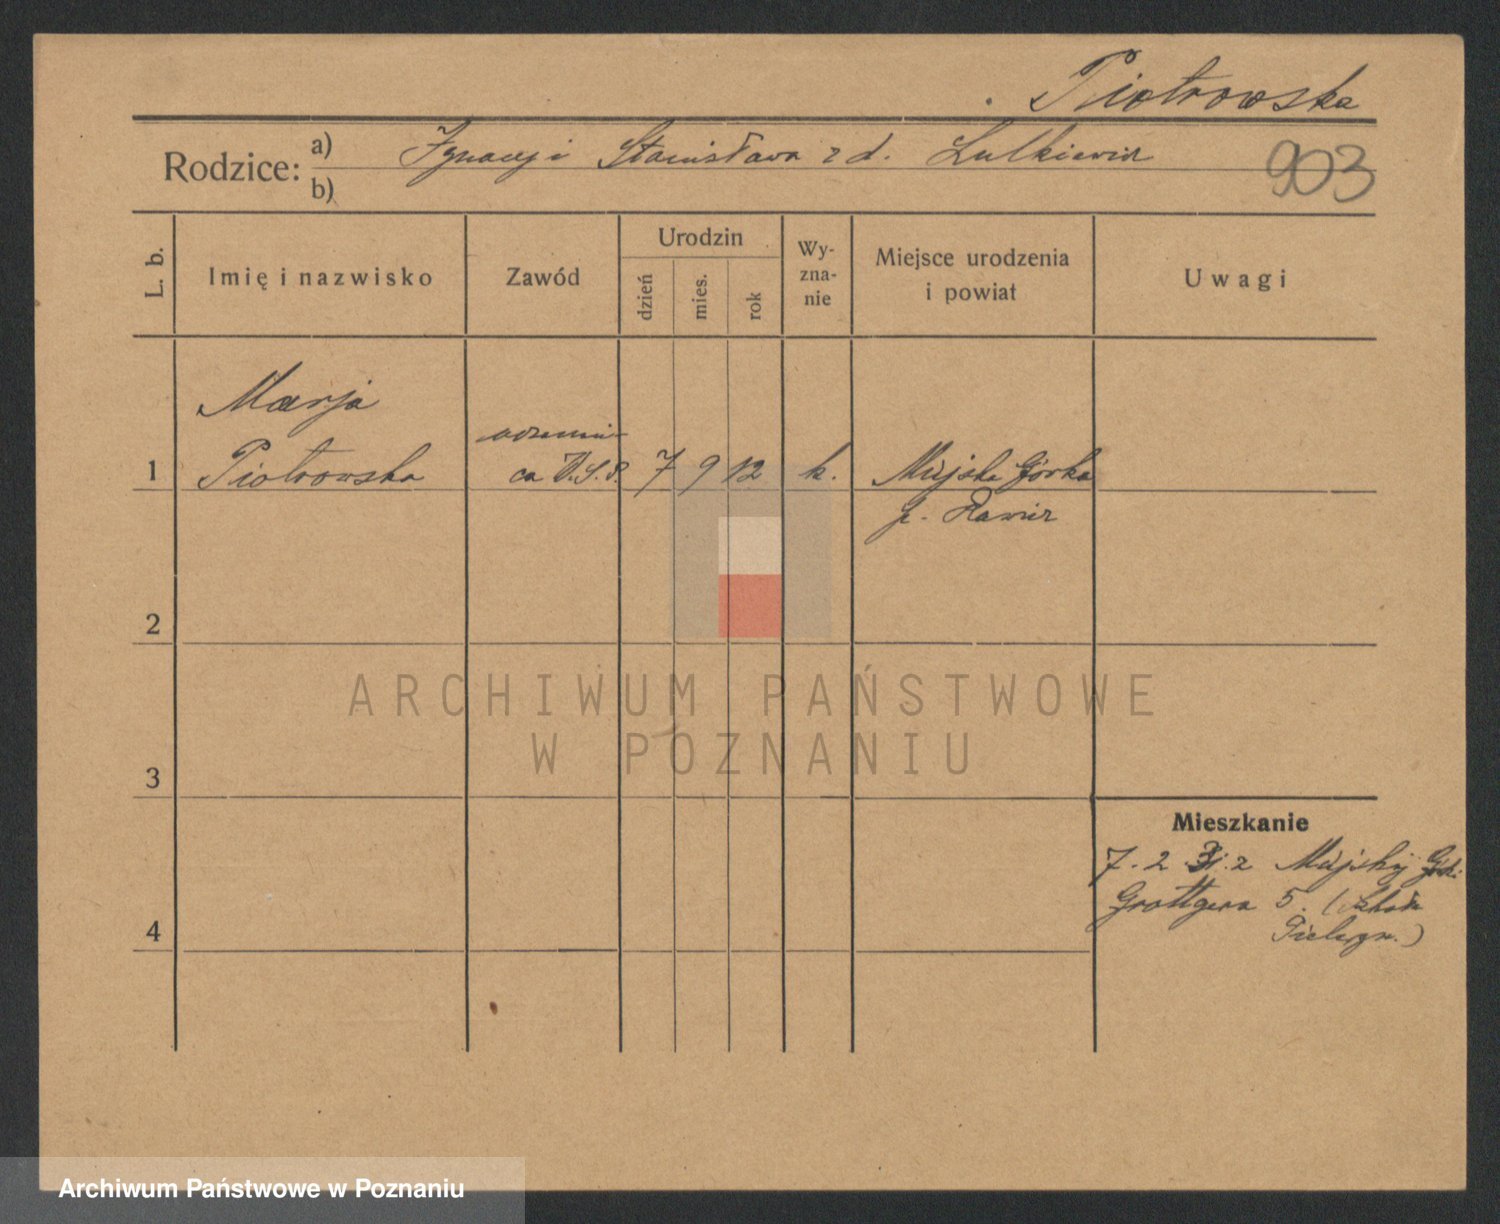 Piotrowska
Rodzice: a) Ignacy i Stanisława z d. Lulkiewicz
b)
903
L. b.
Imię i nazwisko
Zawód
Urodzin
dzień
mies.
rok
Wy-
zna-
nie
Miejsce urodzenia
i powiat
Uwagi
Marja
uczenni-
1 Piotrowska ca 7 9 12 k. Miejska Górka
p. Rawicz
2
ARCHIWUM PAŃSTWOWE
W POZNANIU
3
Mieszkanie
7. 2 31. z Miejskiej Górki
Grottgera 5. (Szkoła
4
Pielęgn.)
Archiwum Państwowe w Poznaniu